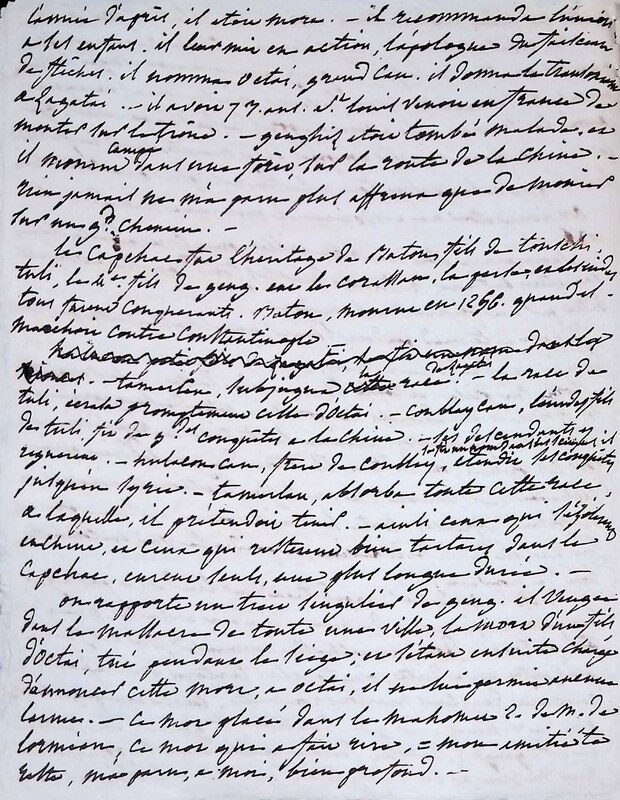 l'année d'après, il etoit mort. – il recommanda l'union
a ses enfans. il leur mit en action, l'apologue du faisceau
de flèches. il nomma Octai, grand Can. il donna la transoxiane
a Zagatai. – il avoit 77. ans. St. louis venoit en france de
monter sur le trône. – genghiz etoit tombé malade, et
il mourut campé dans une forêt, sur la route de la Chine. –
rien jamais ne m'a paru plus affreux que de mourir
sur un gd. chemin. –
le Capchac fut l'héritage de Baton, fils de touschi.
tuli, le 4e. fils de geng. eut le corassan, la perse, et les indes
tous furent conquerants. Baton, mourut en 1256. quand il
marchoit contre Constantinople
– tamerlan, subjugua la race – la race de
tuli, eut promptement celle d'Octai. – coublay can, l'un des fils
de tuli, fit de gdes conquêtes a la Chine. – ses descendants y
regnerent. – hulacou can, frere de coublay, etendit ses conquêtes
jusqu'en syrie. – tamerlan, absorba toute cette race,
a laquelle, il prétendoit tenir. – ainsi ceux qui
en chine, et ceux qui resterent bien tartares dans le
Capchac, eurent seuls, une plus longue durée. –
on rapporte un trait singulier de geng. il vengea
dans le massacre de toute une ville, la mort d'un fils
d'Octai, tué pendant le siege; et s'étant ensuite chargé
d'annoncer cette mort, a octai, il ne lui permit aucune
larmes. – ce mot placé dans le mahomet 2. de M. de
lormian, ce mot qui a fait rire, = mon amitié te
reste, m'a paru, a moi, bien profond. –